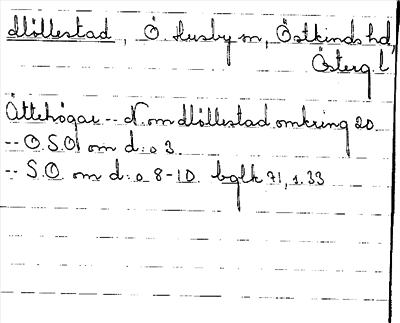 Möllestad, Ö. Husby sn, Östkinds hd,
Österg. l
Ättehögar -- N. om Möllestad omkring 20
-- O.S.O. om d:o 3.
-- S.O. om d:o 8-10. bglk 71, s. 33